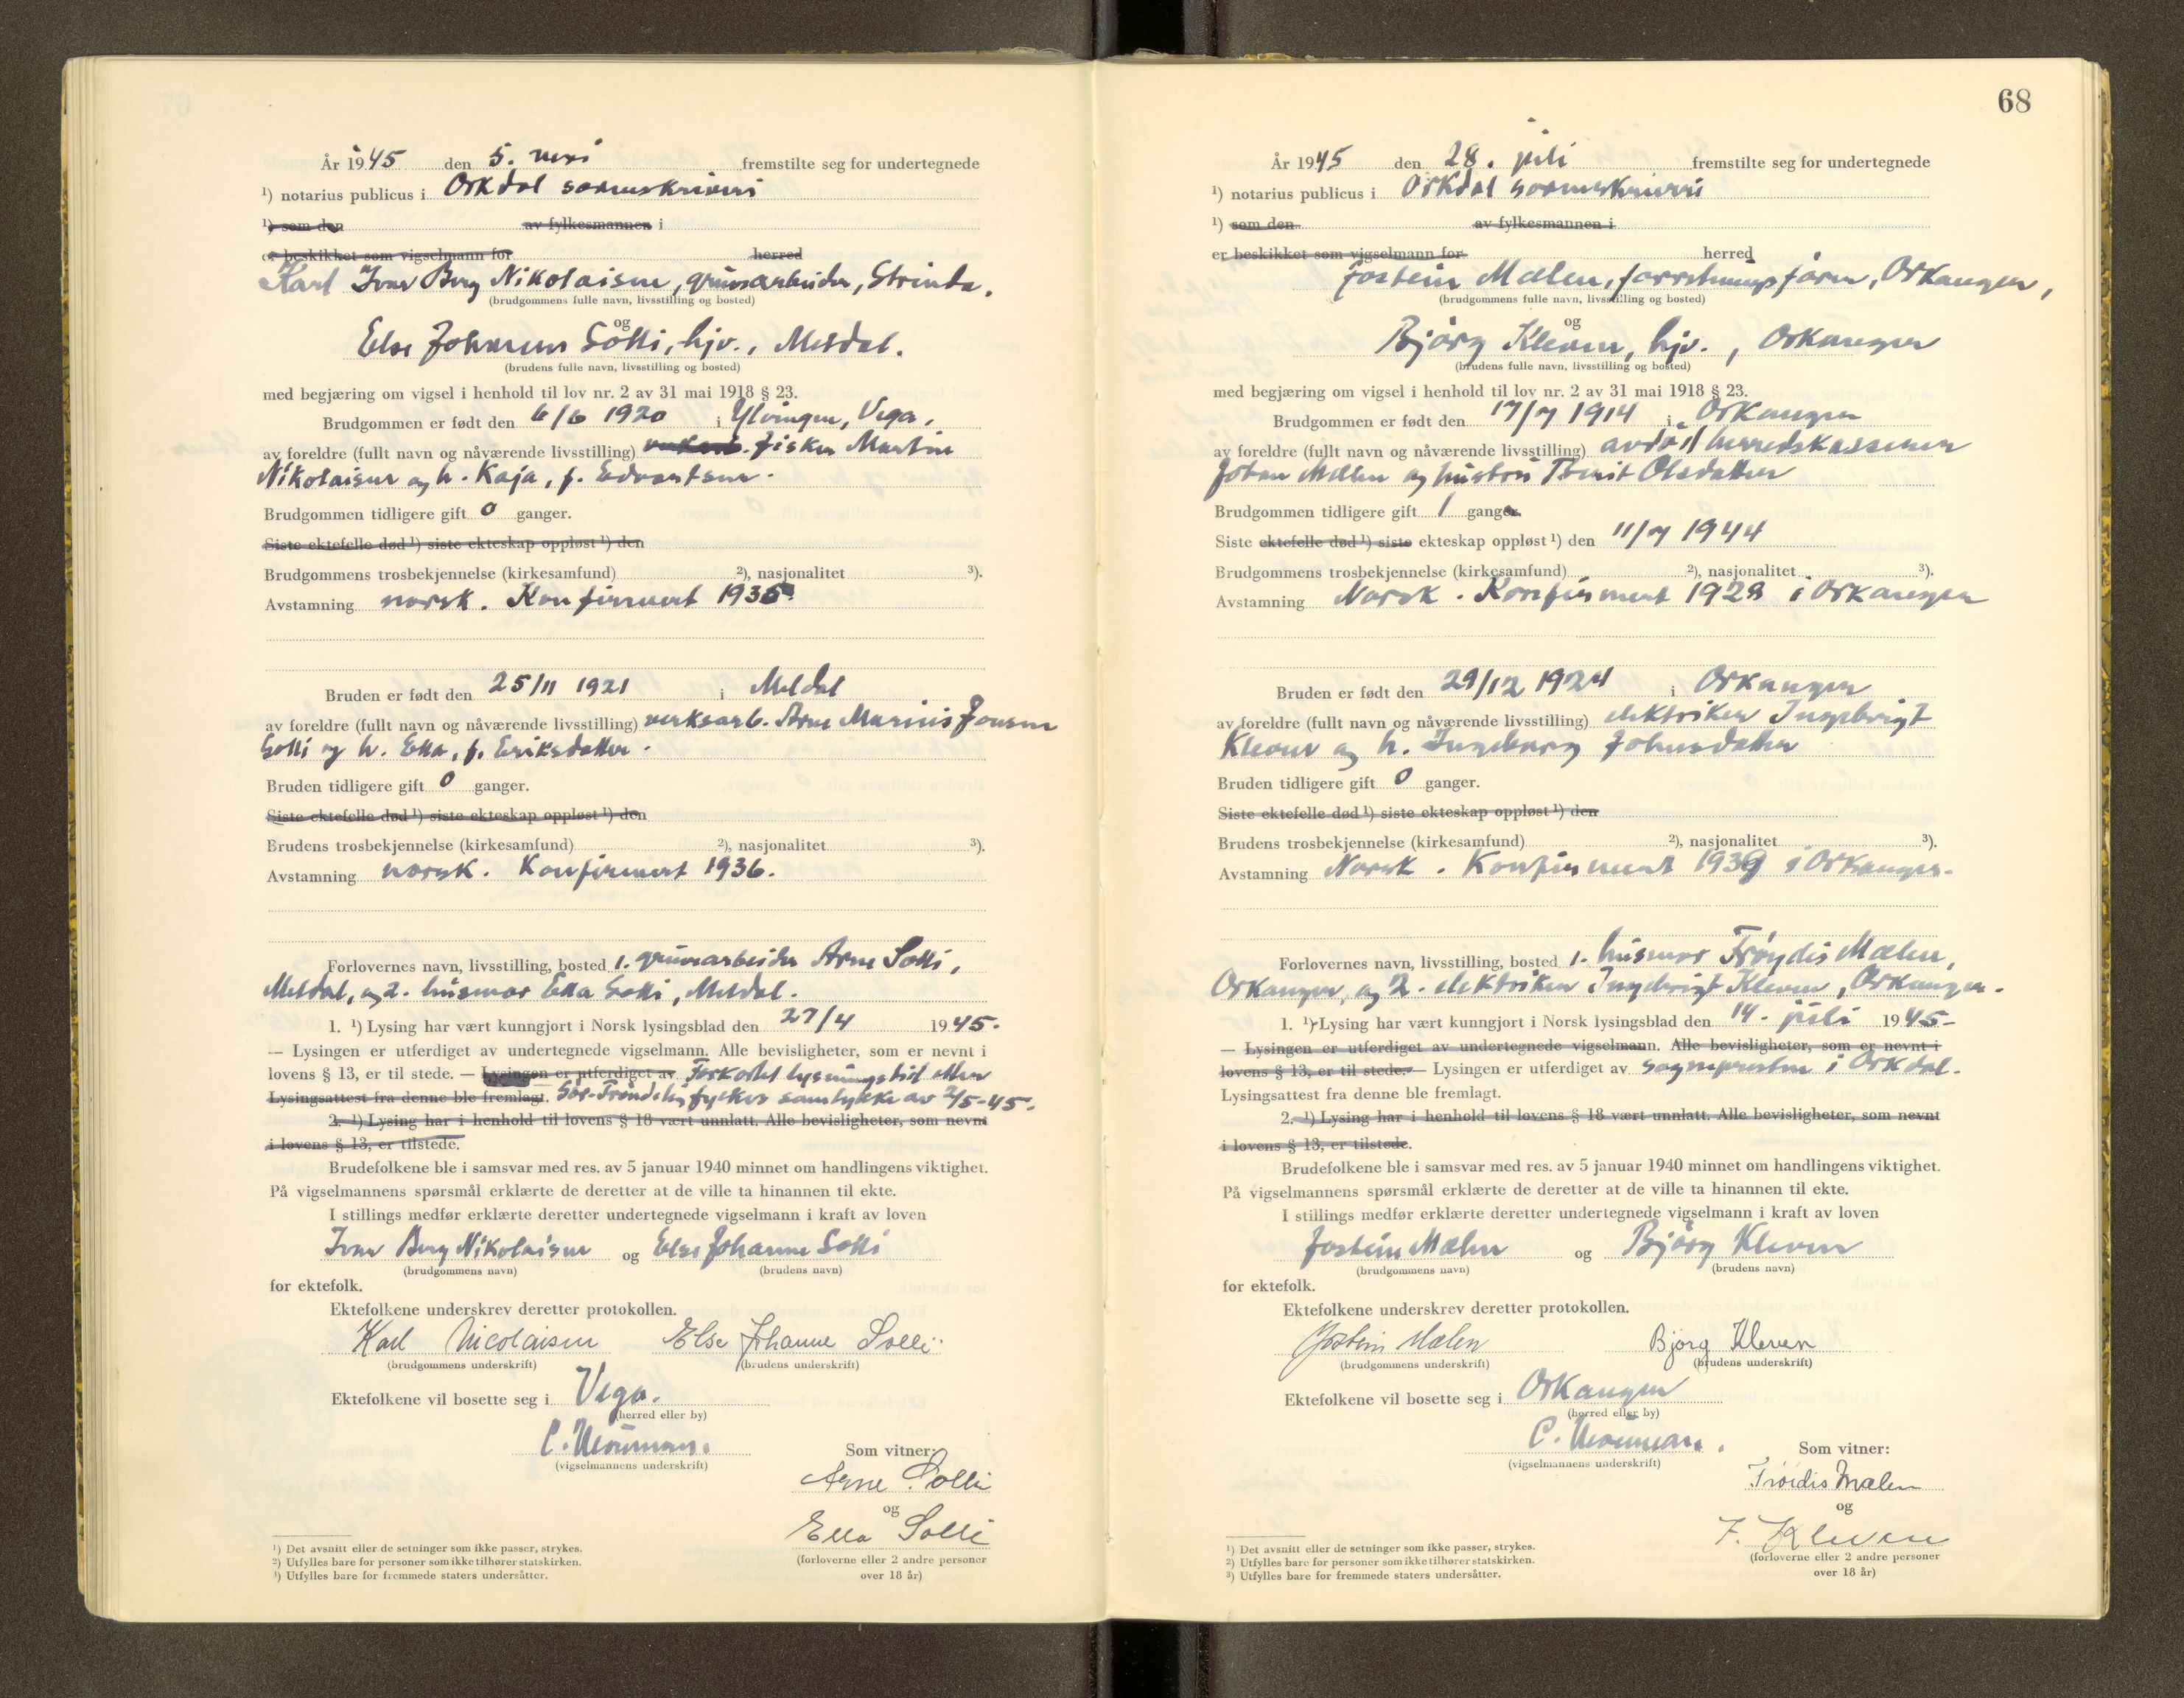 År 1945 den 5. mai fremstilte seg for undertegnede
¹) notarius publicus i Orkdal sorenskriveri
¹) som den av fylkesmannen i
er beskikket som vigselmann for herred
Karl Ivar Berg Nikolaisen, gruvearbeider, Strinda.
(brudgommens fulle navn, livsstilling og bosted)
og
Else Johanne Solli, hjv., Meldal.
(brudens fulle navn, livsstilling og bosted)
med begjæring om vigsel i henhold til lov nr. 2 av 31 mai 1918 § 23.
Brudgommen er født den 6/6 1920 i Ylvingen, Vega,
av foreldre (fullt navn og nåværende livsstilling) fisker Martin
Nikolaisen og h. Kaja, f. Edvartsen.
Brudgommen tidligere gift 0 ganger.
Siste ektefelle død ¹) siste ekteskap oppløst ¹) den
Brudgommens trosbekjennelse (kirkesamfund) ²), nasjonalitet ³).
Avstamning norsk. Konfirmert 1935
Bruden er født den 25/11 1921 i Meldal
av foreldre (fullt navn og nåværende livsstilling) verksarb. Arne Marius Jonsen
Solli og h. Ella, f. Eriksdatter.
Bruden tidligere gift 0 ganger.
Siste ektefelle død ¹) siste ekteskap oppløst ¹) den
Brudens trosbekjennelse (kirkesamfund) ²), nasjonalitet ³).
Avstamning norsk. Konfirmert 1936.
Forlovernes navn, livsstilling, bosted 1. gruvearbeider Arne Solli,
Meldal, og 2. husmor Ella Solli, Meldal.
1. ¹) Lysing har vært kunngjort i Norsk lysingsblad den 27/4 1945.
— Lysingen er utferdiget av undertegnede vigselmann. Alle bevisligheter, som er nevnt i
lovens § 13, er til stede. — Lysingen er utferdiget av Forkortet lysningstid etter
Lysingsattest fra denne ble fremlagt. Sør-Trøndelag fylkes samtykke av 2/5-45.
2. ¹) Lysing har i henhold til lovens § 18 vært unnlatt. Alle bevisligheter, som nevnt
i lovens § 13, er tilstede.
Brudefolkene ble i samsvar med res. av 5 januar 1940 minnet om handlingens viktighet.
På vigselmannens spørsmål erklærte de deretter at de ville ta hinannen til ekte.
I stillings medfør erklærte deretter undertegnede vigselmann i kraft av loven
Ivar Berg Nikolaisen og Else Johanne Solli
(brudgommens navn) (brudens navn)
for ektefolk.
Ektefolkene underskrev deretter protokollen.
Karl Nicolaisen Else Johanne Solli
(brudgommens underskrift) (brudens underskrift)
Ektefolkene vil bosette seg i Vega.
(herred eller by)
C. Neuman.
(vigselmannens underskrift)
Som vitner:
Arne Solli
og
Ella Solli
(forloverne eller 2 andre personer
over 18 år)
¹) Det avsnitt eller de setninger som ikke passer, strykes.
²) Utfylles bare for personer som ikke tilhører statskirken.
³) Utfylles bare for fremmede staters undersåtter.
68
År 1945 den 28. juli fremstilte seg for undertegnede
¹) notarius publicus i Orkdal sorenskriveri
¹) som den av fylkesmannen i
er beskikket som vigselmann for herred
Jostein Mælen, forretningsfører, Orkanger,
(brudgommens fulle navn, livsstilling og bosted)
og
Bjørg Kleven, hjv., Orkanger
(brudens fulle navn, livsstilling og bosted)
med begjæring om vigsel i henhold til lov nr. 2 av 31 mai 1918 § 23.
Brudgommen er født den 17/7 1914 i Orkanger
av foreldre (fullt navn og nåværende livsstilling) avdød herredskasserer
Johan Mælen og hustru Beret Olsdatter
Brudgommen tidligere gift 1 gang
Siste ektefelle død ¹) siste ekteskap oppløst ¹) den 11/7 1944
Brudgommens trosbekjennelse (kirkesamfund) ²), nasjonalitet ³).
Avstamning Norsk. Konfirmert 1928 i Orkanger
Bruden er født den 29/12 1924 i Orkanger
av foreldre (fullt navn og nåværende livsstilling) elektriker Ingebrigt
Kleven og h. Ingeborg Johnsdatter
Bruden tidligere gift 0 ganger.
Siste ektefelle død ¹) siste ekteskap oppløst ¹) den
Brudens trosbekjennelse (kirkesamfund) ²), nasjonalitet ³).
Avstamning Norsk. Konfirmert 1939 i Orkanger.
Forlovernes navn, livsstilling, bosted 1. husmor Frøydis Mælen,
Orkanger, og 2. elektriker Ingebrigt Kleven, Orkanger.
1. ¹) Lysing har vært kunngjort i Norsk lysingsblad den 14. juli 1945—
— Lysingen er utferdiget av undertegnede vigselmann. Alle bevisligheter, som er nevnt i
lovens § 13, er til stede. — Lysingen er utferdiget av sognepresten i Orkdal.
Lysingsattest fra denne ble fremlagt.
2. ¹) Lysing har i henhold til lovens § 18 vært unnlatt. Alle bevisligheter, som nevnt
i lovens § 13, er tilstede.
Brudefolkene ble i samsvar med res. av 5 januar 1940 minnet om handlingens viktighet.
På vigselmannens spørsmål erklærte de deretter at de ville ta hinannen til ekte.
I stillings medfør erklærte deretter undertegnede vigselmann i kraft av loven
Jostein Mælen og Bjørg Kleven
(brudgommens navn) (brudens navn)
for ektefolk.
Ektefolkene underskrev deretter protokollen.
Jostein Mælen Bjørg Kleven
(brudgommens underskrift) (brudens underskrift)
Ektefolkene vil bosette seg i Orkanger
(herred eller by)
C. Neuman.
(vigselmannens underskrift)
Som vitner:
Frøidis Mælen
og
I. Kleven
(forloverne eller 2 andre personer
over 18 år)
¹) Det avsnitt eller de setninger som ikke passer, strykes.
²) Utfylles bare for personer som ikke tilhører statskirken.
³) Utfylles bare for fremmede staters undersåtter.